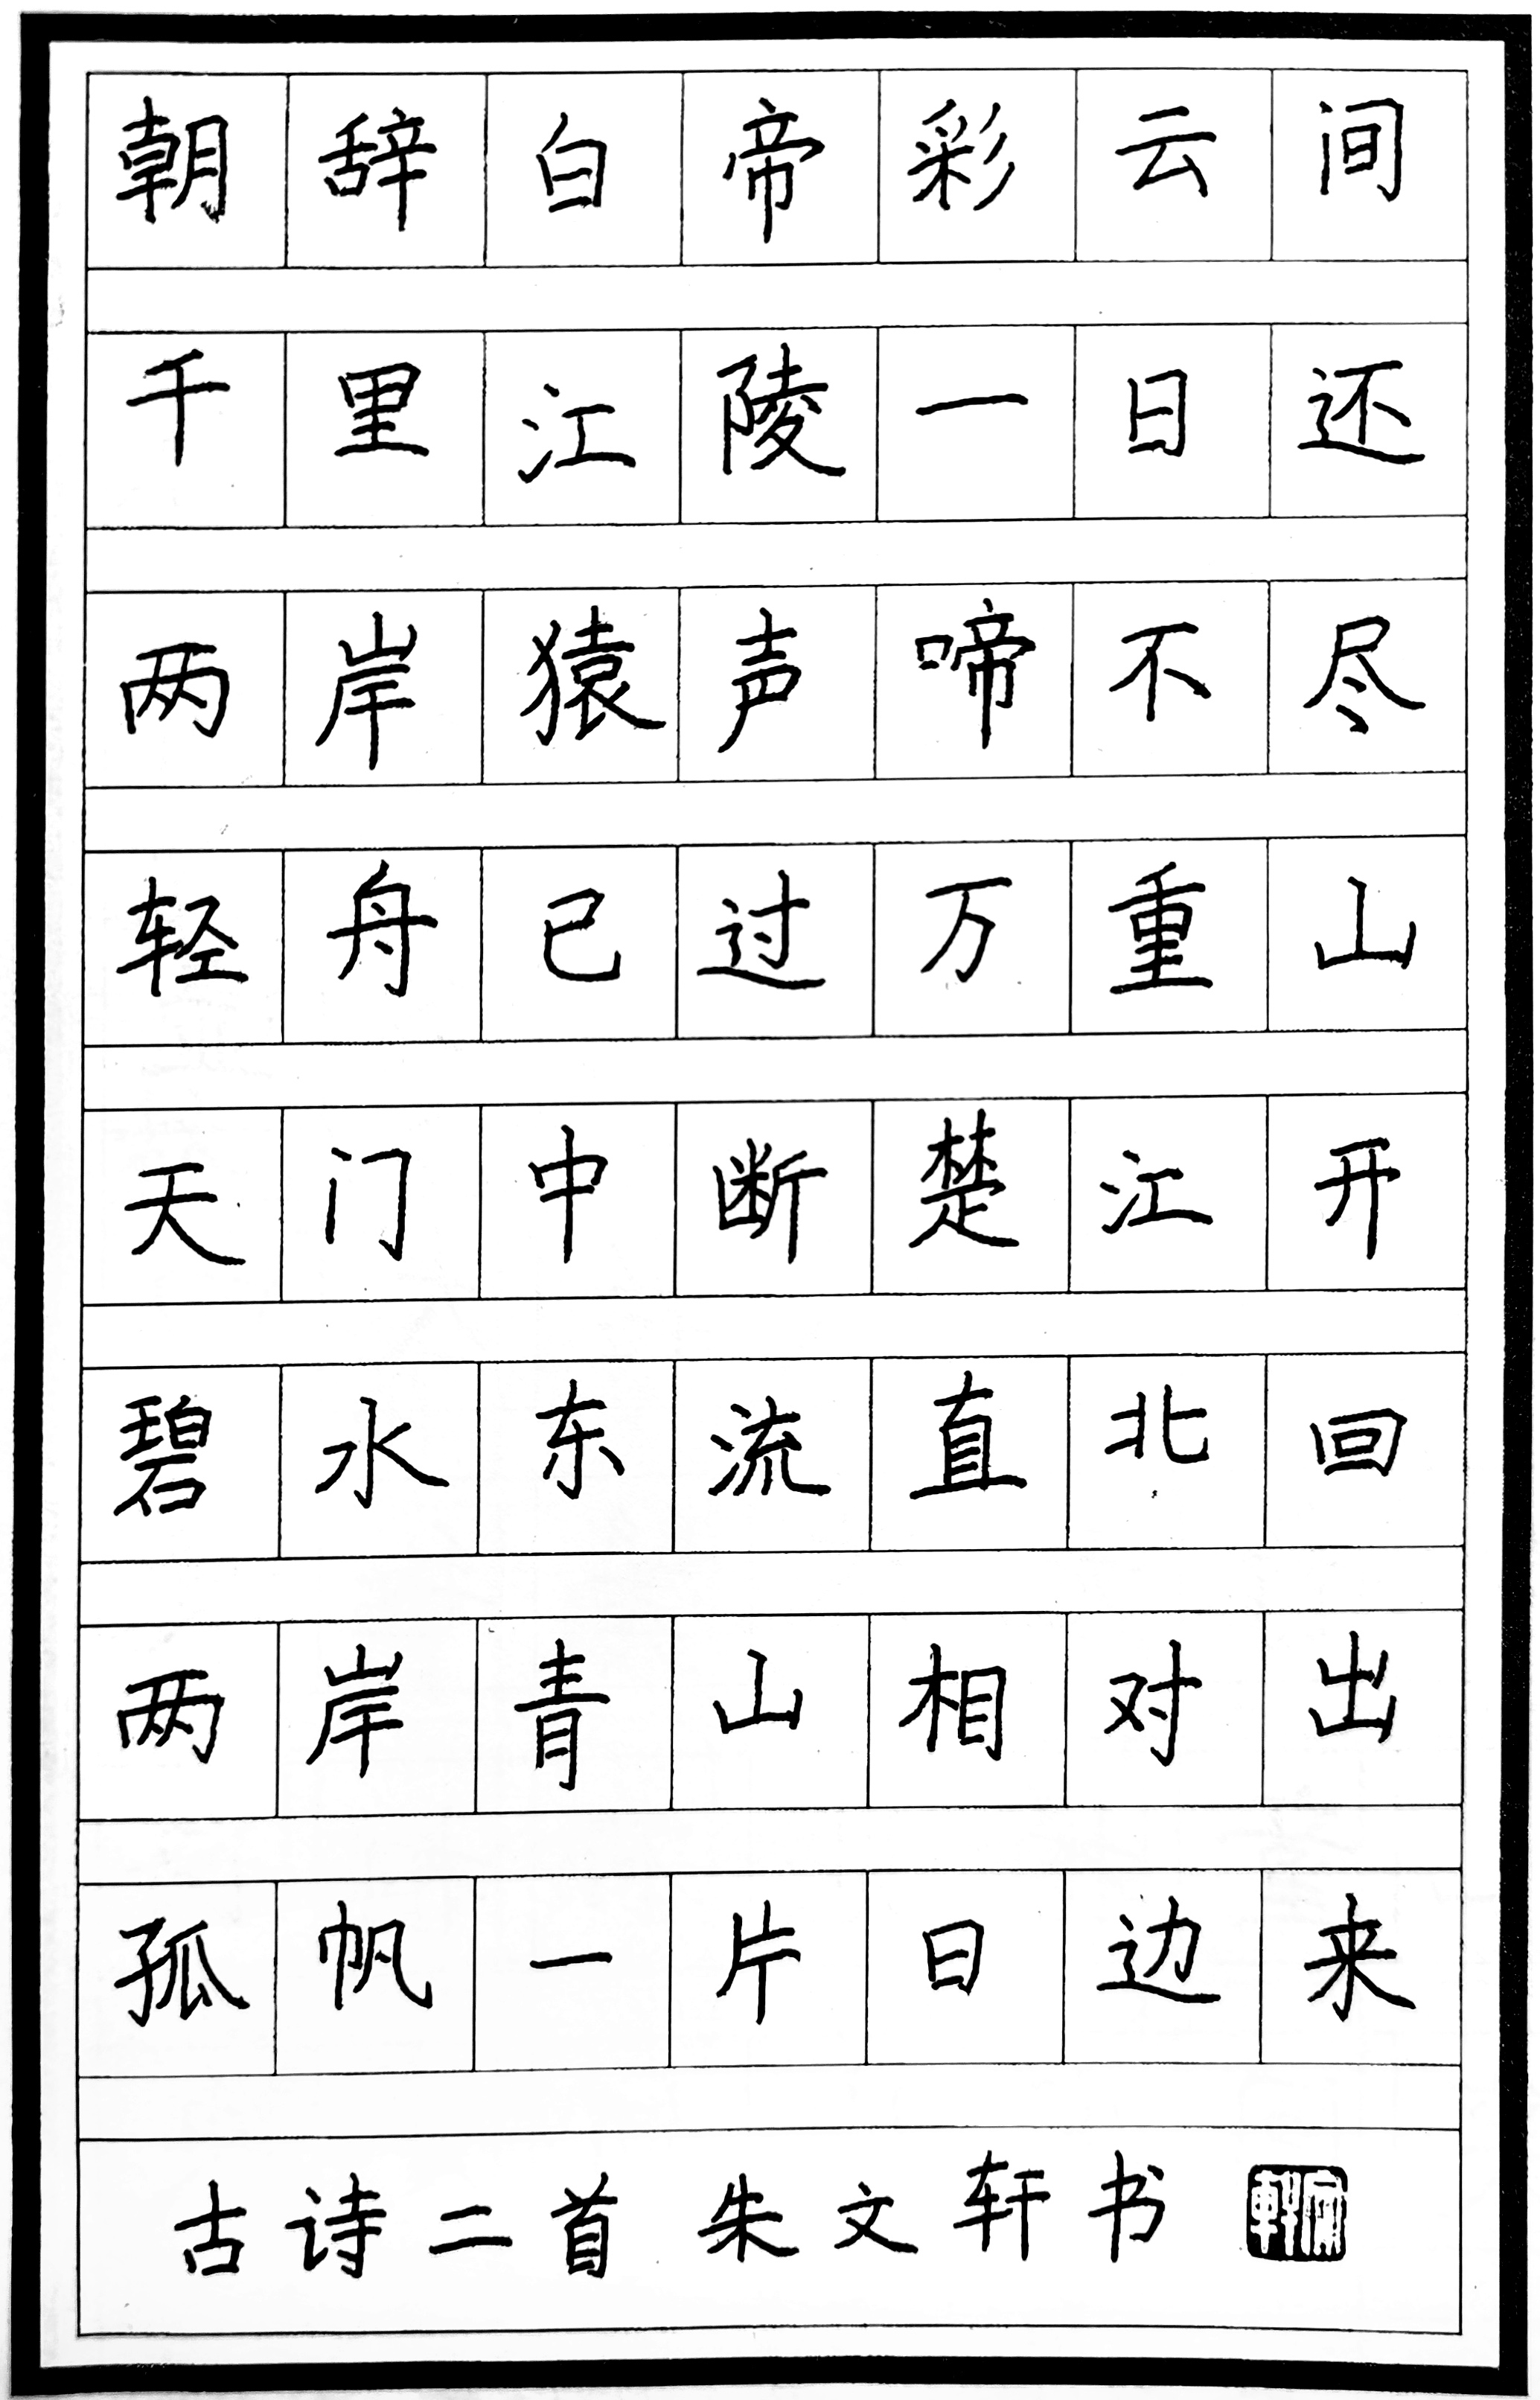 朝辞白帝彩云间
千里江陵一日还
两岸猿声啼不尽
轻舟已过万重山
天门中断楚江开
碧水东流直北回
两岸青山相对出
孤帆一片日边来
古诗二首 朱文轩书